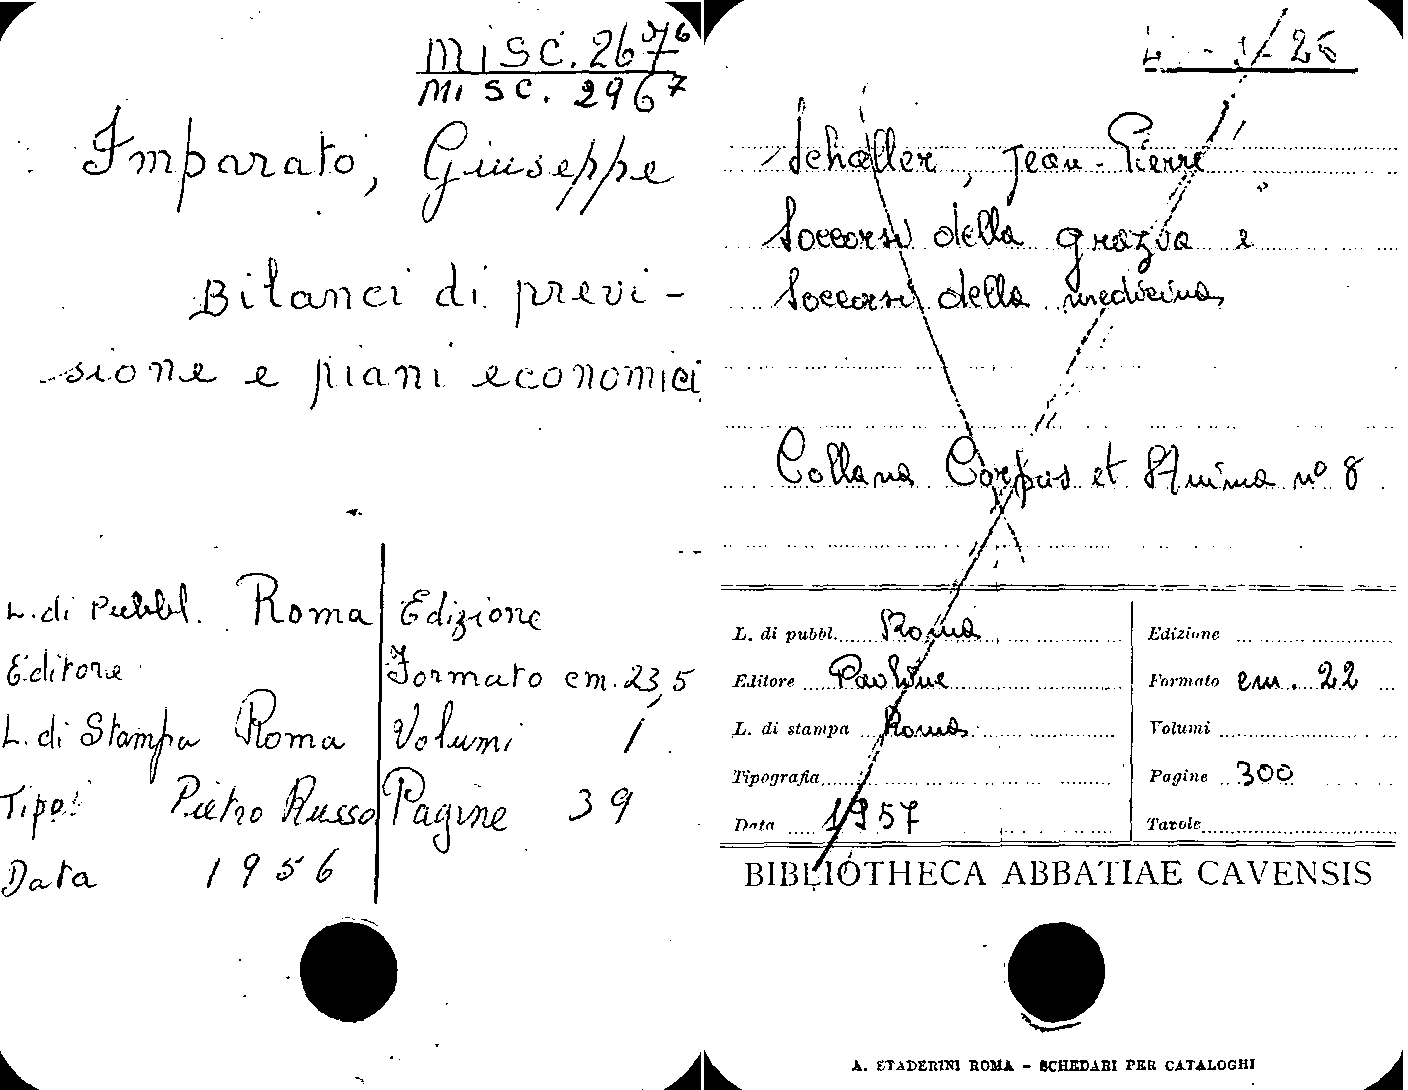 MISC. 267⁶
MISC. 296⁷
Imparato, Giuseppe
Bilanci di previ-
sione e piani economici
L. di Pubbl. Roma
Edizione
Editore
Formato cm. 23,5
L. di Stampa Roma
Volumi 1
Tipo. Pietro Russo
Pagine 39
Data 1956
26
Schaller, Jean-Pierre
Soccorsi della grazia e
Soccorsi della medicina
Collana Corpus et Anima n° 8
L. di pubbl. Roma
Edizione
Editore Paoline
Formato cm. 22
L. di stampa Roma
Volumi
Tipografia
Pagine 300
Data 1957
Tavole
BIBLIOTHECA ABBATIAE CAVENSIS
A. STADERINI ROMA - SCHEDARI PER CATALOGHI